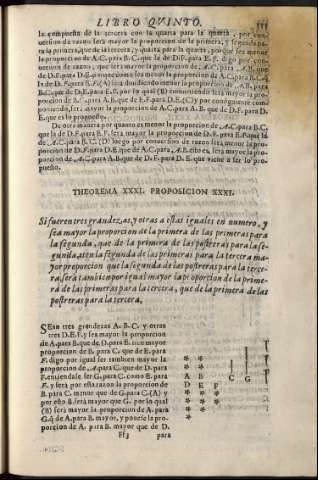 LIBRO QVINTO.
la compuesta de la tercera con la quarta para la quarta, por con-
uersion de razon sera mayor la proporcion de la primera, y segunda pa-
ra la primera, que de la tercera, y quarta para la quarta, porque sea menor
la proporcion de A.C. para B.C. que la de D.F. para E.F. digo por con-
uersion de razon, que sera mayor la proporcion de A.C. para A.B. que
de D.F. para D.E. como sea menor la proporcion de A.C. para B.C.
la de D.F. para E.F. (A) sera diuidiendo menor la proporcion de A.B. para
B.C. que de D.E. para E.F. por lo qual (B) conuirtiendo sera mayor la pro-
porcion de B.C. para A.B. que de E.F. para D.E. (C) y por consiguiente com-
poniendo, sera mayor la proporcion de A.C. para A.B. que de D.F. para D.
E. que es lo propuesto.
De otra manera por quanto es menor la proporcion de A.C. para B.C.
que la de D.F. para E.F. sera mayor la proporcion de D.F. para E.F. que la
de A.C. para B.C. (D) luego por conuersion de razon sera menor la pro-
porcion de D.F. para D.E. que de A.C. para A.B. esto es, sera mayor la pro-
porcion de A.C. para A.B. que de D.F. para D.E. que viene a ser lo pro-
puesto.
THEOREMA XXXI. PROPOSICION XXXI.
Si fueren tres grandezas, y otras a estas iguales en numero, y
sea mayor la proporcion de la primera de las primeras para
la segunda, que de la primera de las postreras para la se-
gunda, aten la segunda de las primeras para la tercera ma-
yor proporcion que la segunda de las postreras para la terce-
ra, sera tambien por igual mayor la proporcion de la prime-
ra de las primeras para la tercera, que de la primera de las
postreras para la tercera.
SEan tres grandezas A.B.C. y otras
tres D.E.F. y sea mayor la proporcion
de A. para B. que de D. para E. item mayor
proporcion de B. para C. que de E. para
F. digo por igual ser tambien mayor la
proporcion de A. para C. que de D. para
F. entiendase ser G. para C. como E. para
F. y sera por esta razon la proporcion de
B. para C. menor que de G. para C. (A) y
por esso B. sera mayor que G. por lo qual
(B) sera mayor la proporcion de A. para
G. que de A. para B. mayor, y ponese la pro-
porcion de A. para B. mayor que de D.
A B
C G
D E F
Ff3 para